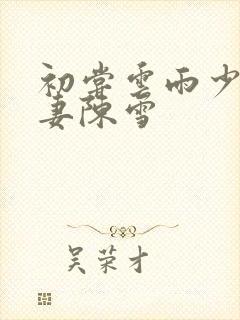 初尝云雨少
妻陈雪
吴荣才